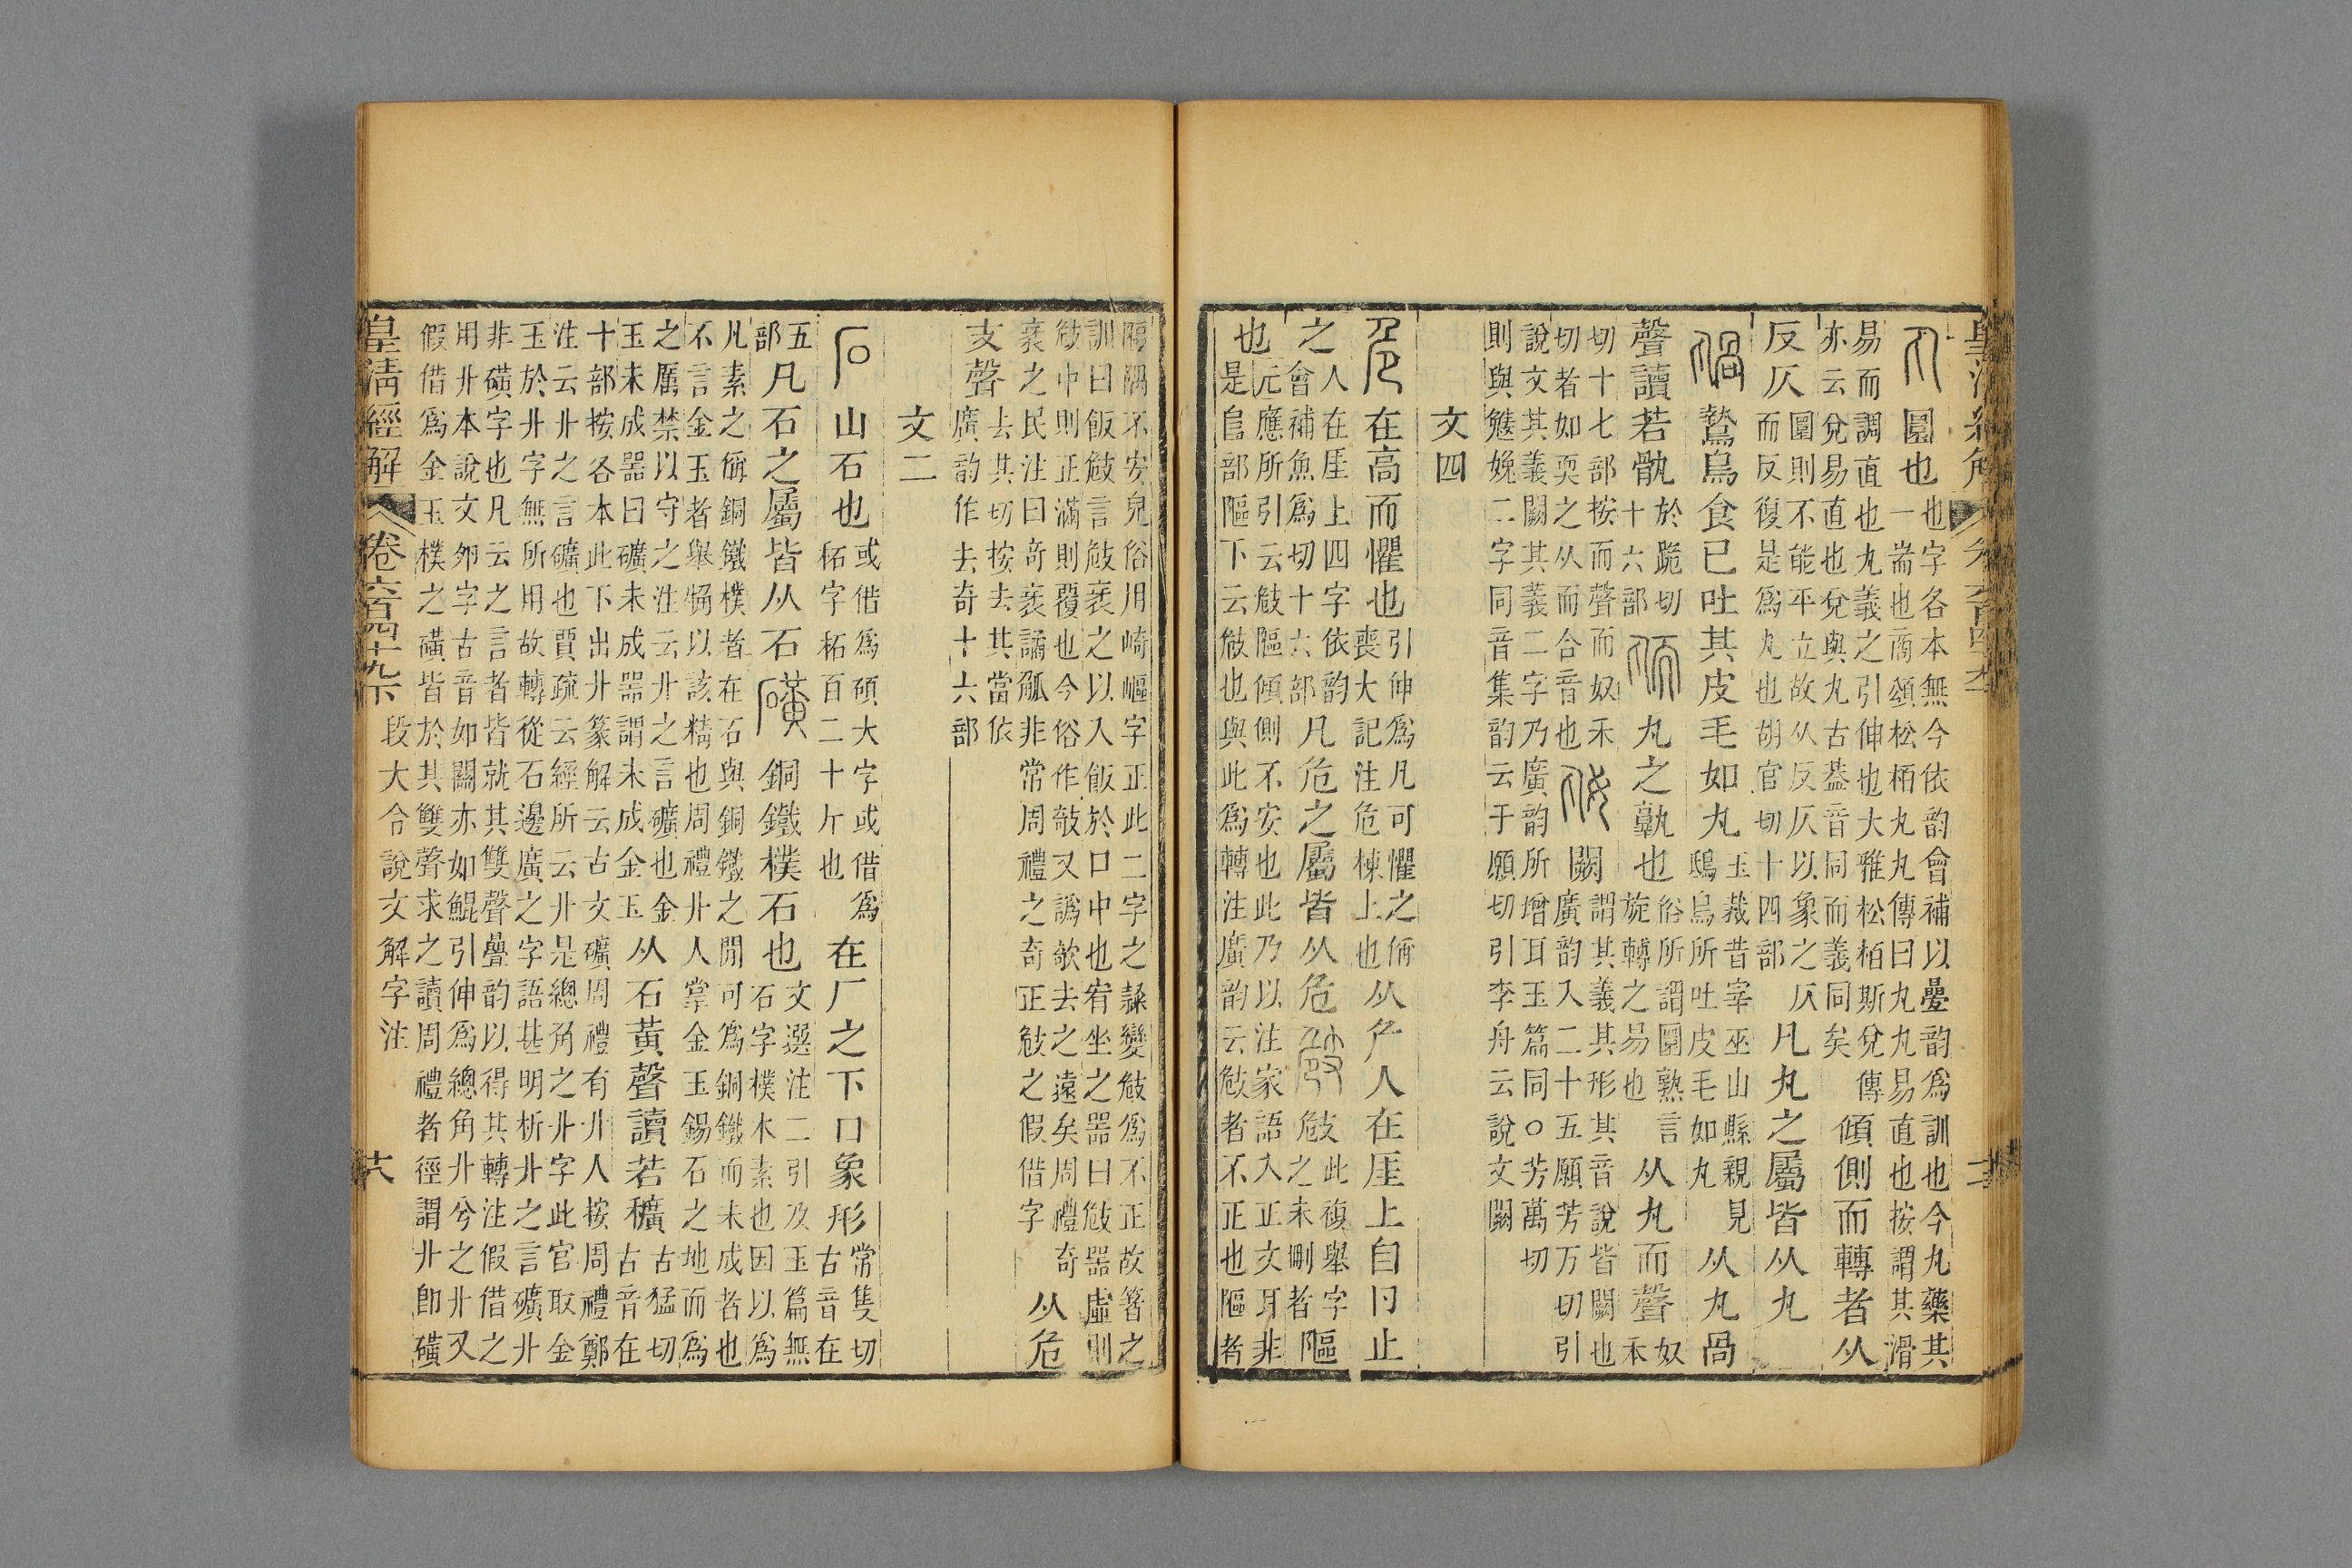 丸圜也也字各本無今依韵會補以曡韵為訓也今丸藥其一耑也商頌松栢丸丸傳曰丸丸易直也按謂其滑
易而調直也丸義之引伸也大雅松栢斯兌傳亦云兌易直也兌與丸古葢音同而義同矣傾側而轉者从
反仄圜則不能平立故从反仄以象之仄而反復是為丸也胡官切十四部凡丸之屬皆从丸
鷙鳥食已吐其皮毛如丸玉裁昔宰巫山縣親見鴟鳥所吐皮毛如丸从丸咼
聲讀若骫於跪切十六部丸之孰也俗所謂圜熟言旋轉之易也从丸而聲奴禾
切十七部按而聲而奴禾切者如耎之从而合音也闕謂其義其形其音說皆闕也廣韵入二十五願芳万切引
說文其義闕其義二字乃廣韵所增耳玉篇同○芳萬切則與娩二字同音集韵云于願切引李舟云說文闕
文四
危在高而懼也引伸為凡可懼之偁喪大記注危棟上也从厃人在厓上自卪止
之人在厓上四字依韵會補魚為切十六部凡危之屬皆从危㩻此複舉字之未刪者䧢
也元應所引云㩻䧢傾側不安也此乃以注家語入正文耳非是𨸏部䧢下云㩻也與此為轉注廣韵云㩻者不正也䧢者
隔隅不安皃俗用崎嶇字正此二字之隸變㩻為不正故箸之訓曰飯㩻言㩻衺之以入飯於口中也宥坐之器曰㩻器虛則
㩻中則正滿則覆也今俗作攲又譌欹去之遠矣周禮奇衺之民注曰奇衺譎觚非常周禮之奇正㩻之假借字从危
支聲去其切按去其當依廣韵作去奇十六部
文二
石山石也或借為碩大字或借為䄷字䄷百二十斤也在厂之下口象形常隻切古音在
五部凡石之屬皆从石磺銅鐵樸石也文選注二引及玉篇無石字樸木素也因以為
凡素之偁銅鐵樸者在石與銅鐵之閒可為銅鐵而未成者也不言金玉者舉觕以該精也周禮廾人掌金玉錫石之地而為
之厲禁以守之注云廾之言礦也金玉未成器曰礦未成器謂未成金玉从石黃聲讀若穬古猛切古音在
十部按各本此下出廾篆解云古文礦周禮有廾人按周禮鄭注云廾之言礦也賈疏云經所云廾是總角之廾字此官取金
玉於廾字無所用故轉從石邊廣之字語甚明析廾之言礦廾非磺字也凡云之言者皆就其雙聲曡韵以得其轉注假借之
用廾本說文卵字古音如關亦如鯤引伸為總角廾兮之廾又假借為金玉樸之磺皆於其雙聲求之讀周禮者徑謂廾卽磺
皇清經解 卷六百四十九下 段大令說文解字注